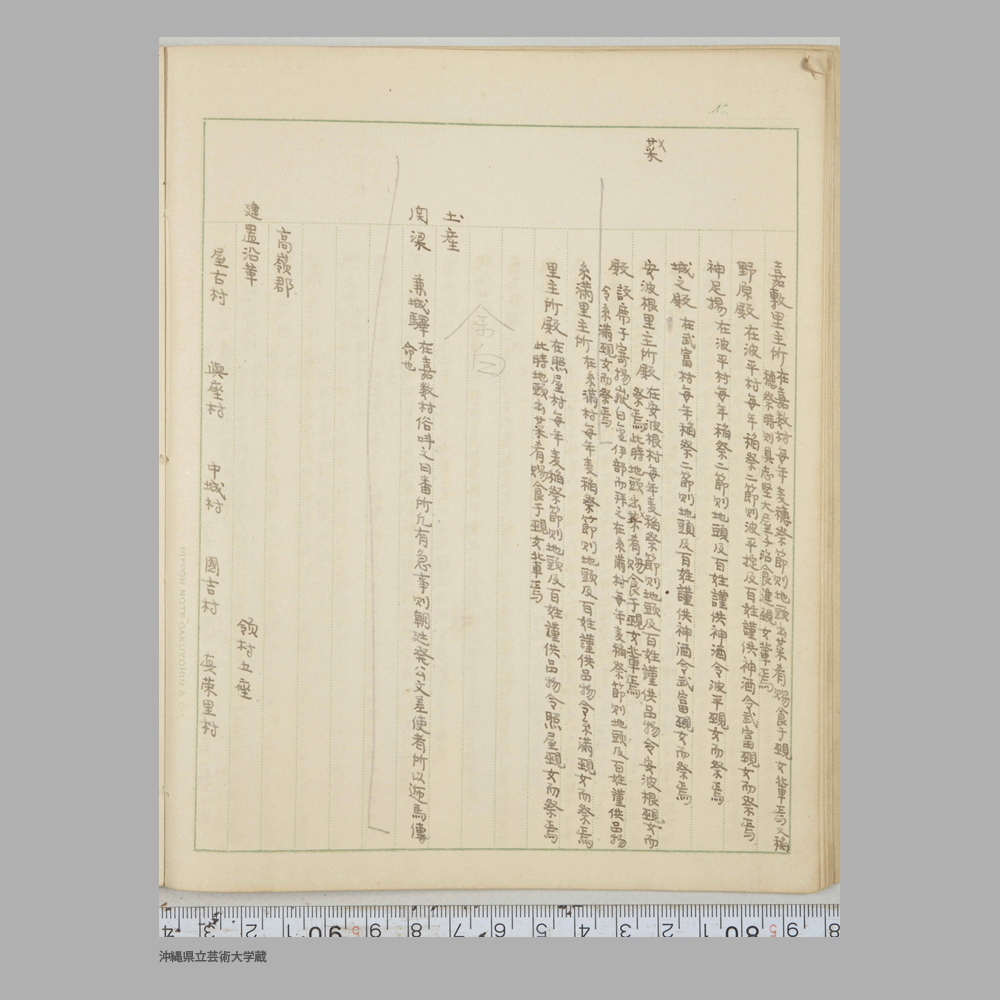 菜
嘉敷里主所 在嘉数村毎年麦穂祭節則地頭出菜肴賜食于覡女輩焉又稲
穂祭時則具志堅大屋子治食進覡女輩焉
野原殿 在波平村毎年稲祭二節則波平掟及百姓謹供神酒令武富覡女而祭焉
神足揚 在波平村毎年稲祭二節則地頭及百姓謹供神酒令波平覡女而祭焉
城之殿 在武富村毎年稲祭二節則地頭及百姓謹供神酒令武富覡女而祭焉
安波根里主所殿 在安波根村毎年麦稲祭節則地頭及百姓謹供品物令安波根覡女而
祭焉此時地頭出菜肴賜食于覡女輩焉
殿 設席于寄揚嶽白金伊部而拜之在糸満村毎年麦稲祭節則地頭及百姓謹供品物
令糸満覡女而祭焉
糸満里主所 在糸満村毎年麦稲祭節則地頭及百姓謹供品物令糸満覡女而祭焉
里主所殿 在照屋村毎年麦稲祭節則地頭及百姓謹供品物令照屋覡女而祭焉
此時地頭出菜肴賜食于覡女輩焉
土産
余白
関梁 兼城驛 在嘉数村俗呼之曰番所凡有急事則朝廷発公文差使者所以逓馬傳
命也
高嶺郡
建置沿革 領村五座
屋古村 與座村 中城村 國吉村 真栄里村
NIPPON NOTE GAKUYOHIN & C
No.
沖縄県立芸術大学蔵